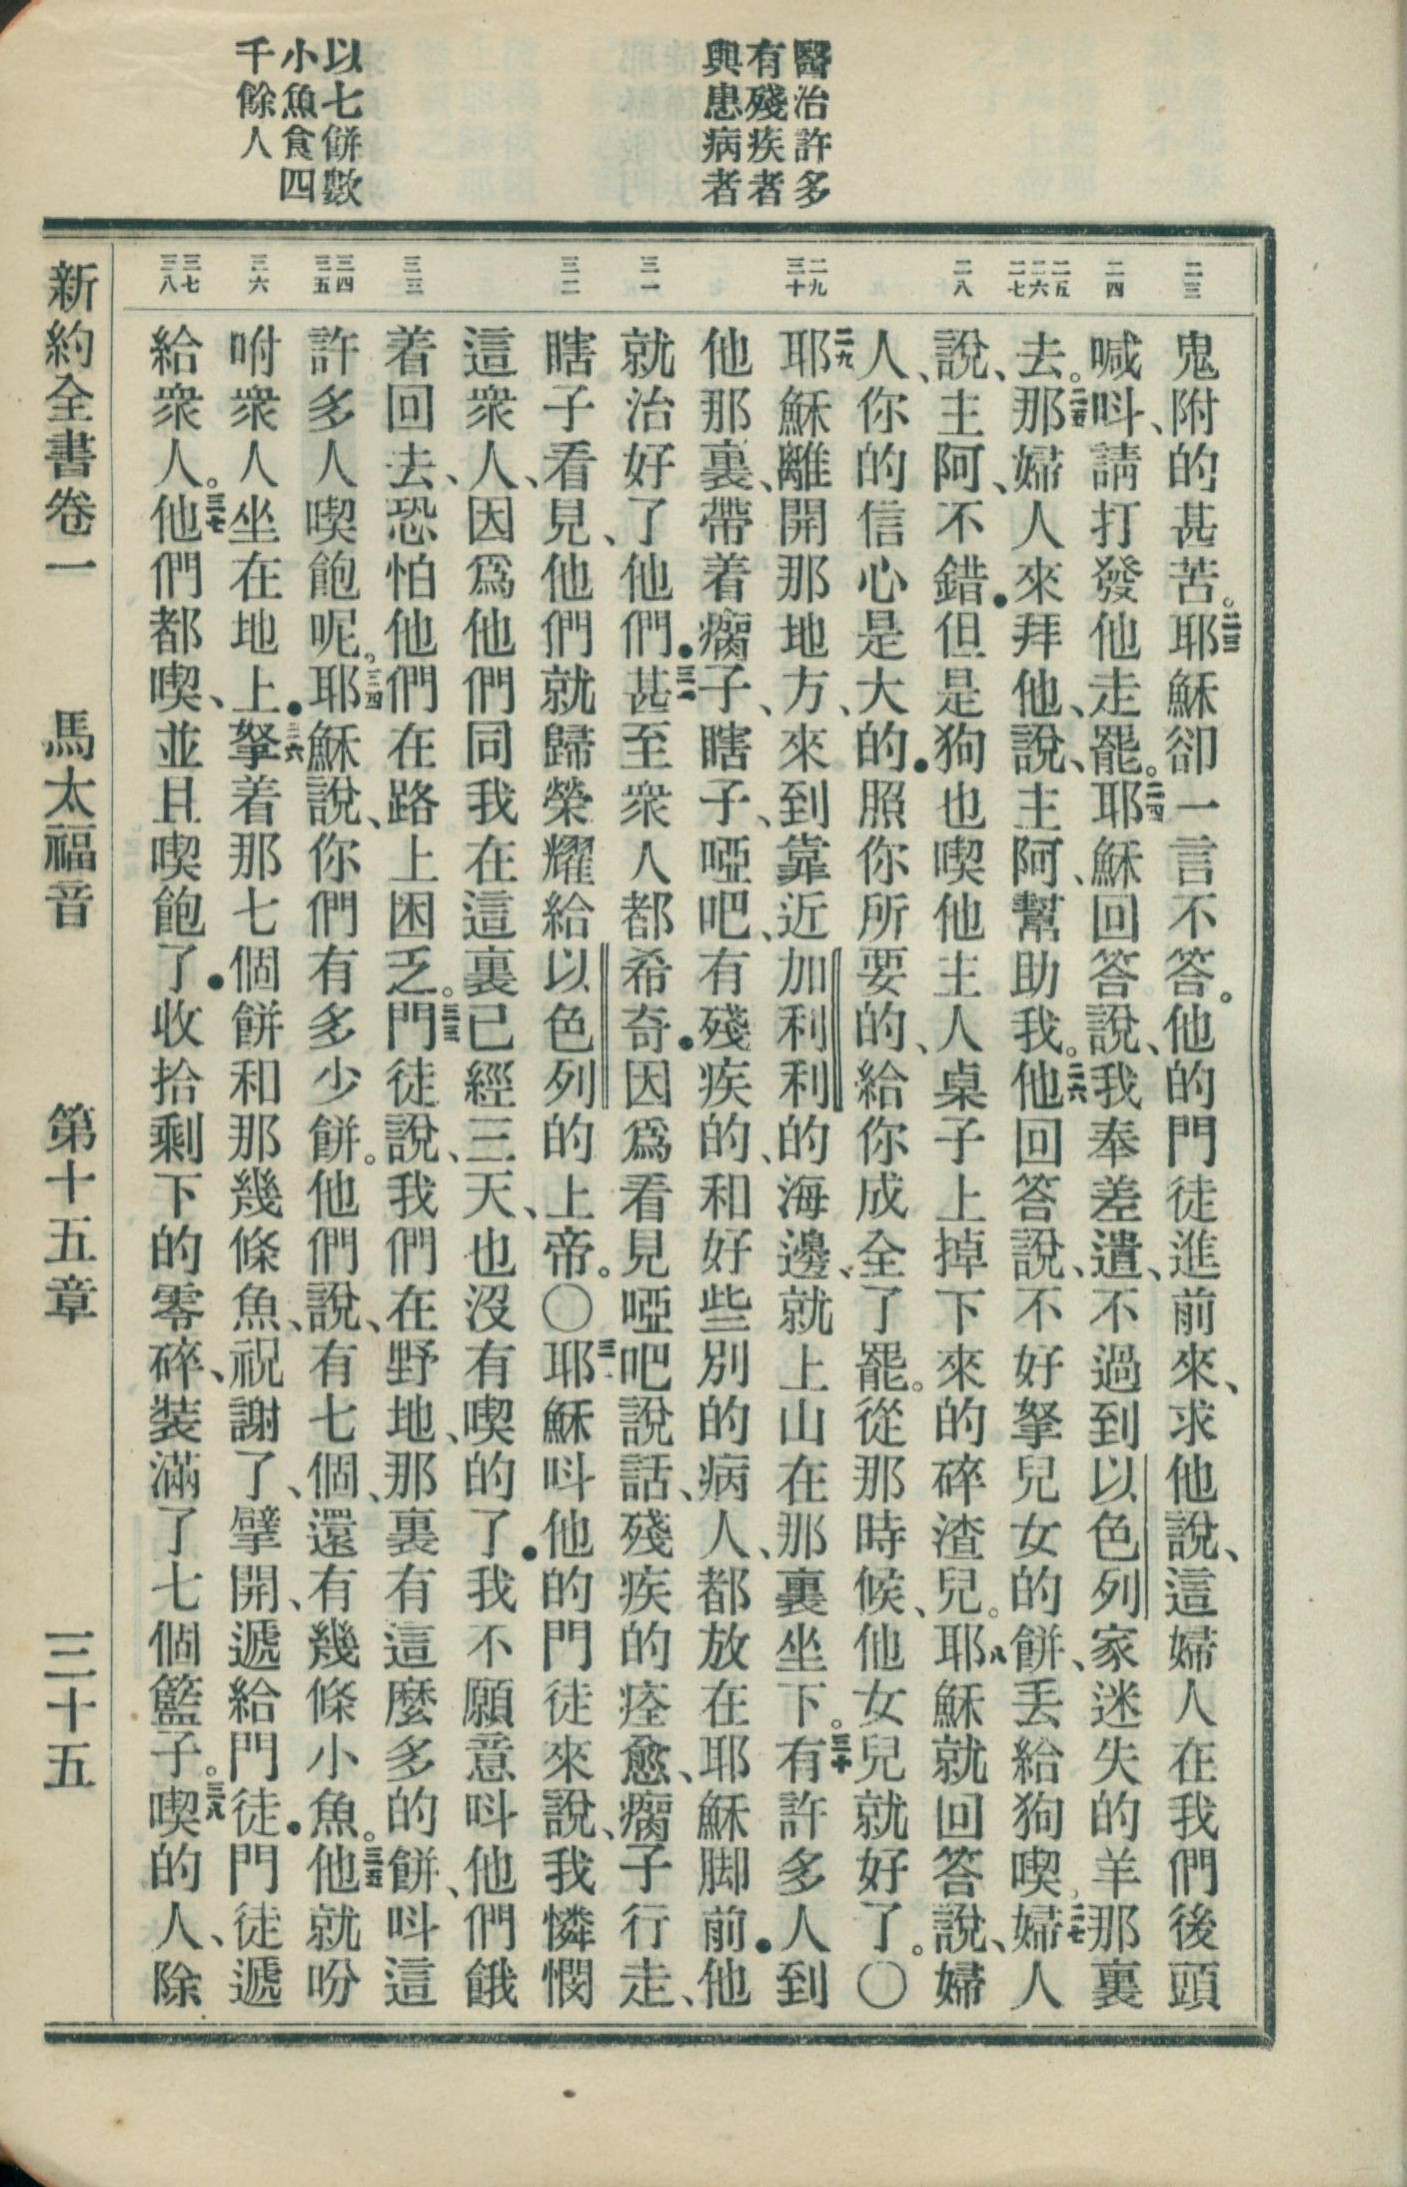 醫治許多
有殘疾者
與患病者
以七餅數
小魚食四
千餘人
二三
二四
二五
二六
二七
二八
二九
三十
三一
三二
三三
三四
三五
三六
三七
三八
鬼附的甚苦。二三耶穌卻一言不答。他的門徒進前來、求他說、這婦人在我們後頭
喊呌、請打發他走罷。二四耶穌回答說、我奉差遣、不過到以色列家迷失的羊那裏
去。二五那婦人來拜他、說、主阿、幫助我。二六他回答說、不好拏兒女的餅、丟給狗喫。二七婦人
說、主阿、不錯.但是狗也喫他主人桌子上掉下來的碎渣兒。八耶穌就回答說、婦
人、你的信心是大的.照你所要的、給你成全了罷。從那時候、他女兒就好了。〇
二九耶穌離開那地方、來到靠近加利利的海邊、就上山在那裏坐下。三十有許多人到
他那裏、帶着瘸子、瞎子、啞吧、有殘疾的、和好些別的病人、都放在耶穌脚前.他
就治好了他們.三一甚至衆人都希奇.因爲看見啞吧說話、殘疾的痊愈、瘸子行走、
瞎子看見、他們就歸榮耀給以色列的上帝。〇三二耶穌呌他的門徒來說、我憐憫
這衆人、因爲他們同我在這裏已經三天、也沒有喫的了.我不願意呌他們餓
着回去、恐怕他們在路上困乏。三三門徒說、我們在野地、那裏有這麼多的餅、呌這
許多人喫飽呢。三四耶穌說、你們有多少餅。他們說、有七個、還有幾條小魚。三五他就吩
咐衆人坐在地上.三六拏着那七個餅和那幾條魚、祝謝了、擘開、遞給門徒.門徒遞
給衆人。三七他們都喫、並且喫飽了.收拾剩下的零碎、裝滿了七個籃子。三八喫的人、除
新約全書卷一　馬太福音　第十五章　三十五